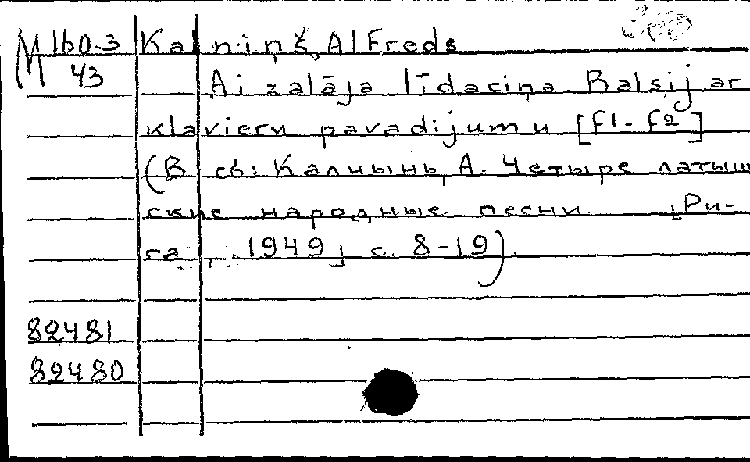 М 160-3 Kalniņš, Alfreds
43 Ai zalāja līdaciņa Balsij ar
klavieru pavadijumu [f1-f2]
(В сб: Калнынь, А. Четыре латыш
ские народные песни [Ри-
га, 1949] с. 8-19)
82481
82480